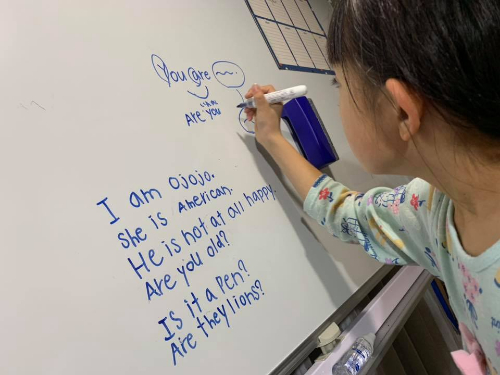 You are
Are you
I am ojojo.
She is American.
He is not at all happy.
Are you old?
Is it a pen?
Are they lions?